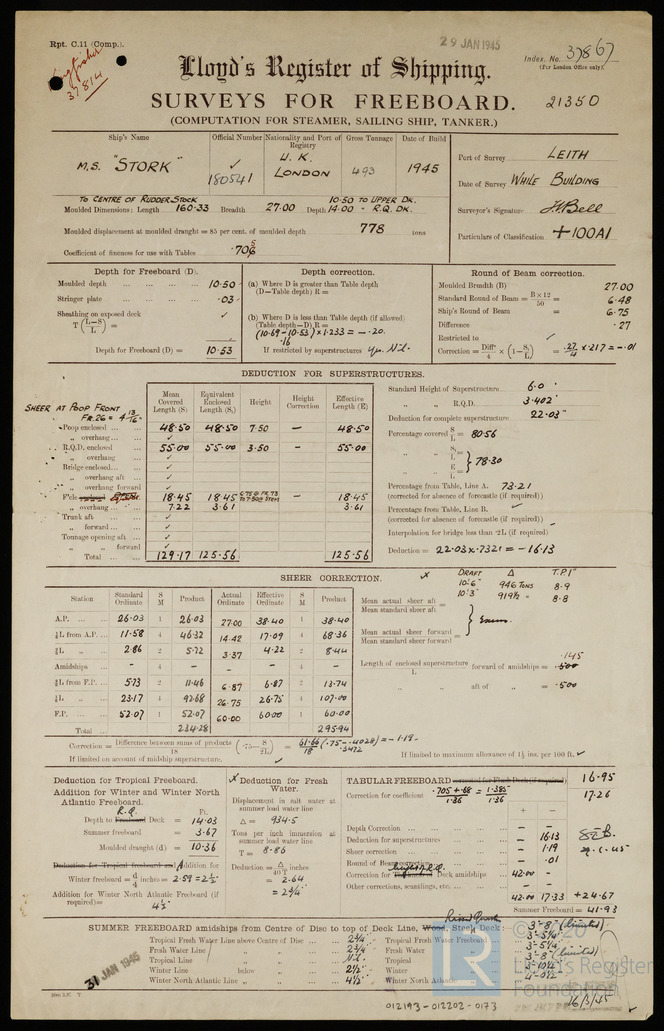 Rpt. C.11 (Comp.).
29 JAN 1945
Index. No. 37867
(For London Office only).
37814
Lloyd's Register of Shipping.
SURVEYS FOR FREEBOARD.
21350
(COMPUTATION FOR STEAMER, SAILING SHIP, TANKER.)
Ship's Name Official Number Nationality and Port of Registry Gross Tonnage Date of Build
M.S. "STORK" 180541 U.K. LONDON 493 1945
Port of Survey LEITH
Date of Survey WHILE BUILDING
Surveyor's Signature
Particulars of Classification +100A1
TO CENTRE OF RUDDER STOCK 10.50 TO UPPER DK.
Moulded Dimensions: Length 160.33 Breadth 27.00 Depth 14.00 - R.Q. DK.
Moulded displacement at moulded draught = 85 per cent. of moulded depth 778 tons
Coefficient of fineness for use with Tables .705
Depth for Freeboard (D).
Moulded depth 10.50
Stringer plate .03
Sheathing on exposed deck
T (L−S / L) =
Depth for Freeboard (D) = 10.53
Depth correction.
(a) Where D is greater than Table depth
(D−Table depth) R =
(b) Where D is less than Table depth (if allowed)
(Table depth−D) R =
(10.69 - 10.53) × 1.233 = - .20.
.16
If restricted by superstructures
Round of Beam correction.
Moulded Breadth (B) 27.00
Standard Round of Beam = B×12 / 50 = 6.48
Ship's Round of Beam = 6.75
Difference .27
Restricted to
Correction = Diff / 4 × (1 − S₁ / L) = .27 / 4 × .217 = - .01
DEDUCTION FOR SUPERSTRUCTURES.
SHEER AT POOP FRONT
FR. 26 = 4 13/16"
Mean Covered Length (S) Equivalent Enclosed Length (S₁) Height Height Correction Effective Length (E)
Poop enclosed 48.50 48.50 7.50 - 48.50
„ overhang
R.Q.D. enclosed 55.00 55.00 3.50 - 55.00
„ overhang
Bridge enclosed
„ overhang aft
„ overhang forward
F'cle 18.45 18.45 6.75 @ FR. 73 TO 7.50 @ STEM - 18.45
„ overhang 7.22 3.61 3.61
Trunk aft
„ forward
Tonnage opening aft
„ „ forward
Total 129.17 125.56 125.56
Standard Height of Superstructure 6.0'
„ „ R.Q.D. 3.402'
Deduction for complete superstructure 22.03"
Percentage covered S / L = 80.56
„ „ S₁ / L =
„ „ E / L =
78.30
Percentage from Table, Line A. 73.21
(corrected for absence of forecastle (if required))
Percentage from Table, Line B.
(corrected for absence of forecastle (if required))
Interpolation for bridge less than ·2L (if required)
Deduction = 22.03 × .7321 = - 16.13
SHEER CORRECTION.
Station Standard Ordinate S M Product Actual Ordinate Effective Ordinate S M Product
A.P. 26.03 1 26.03 27.00 38.40 1 38.40
⅙L from A.P. 11.58 4 46.32 14.42 17.09 4 68.36
⅓L „ 2.86 2 5.72 3.37 4.22 2 8.44
Amidships - 4 - - 4 -
⅓L from F.P. 5.73 2 11.46 6.87 6.87 2 13.74
⅙L „ 23.17 4 92.68 26.75 26.75 4 107.00
F.P. 52.07 1 52.07 60.00 60.00 1 60.00
Total 234.28 295.94
DRAFT Δ T.P.I"
10'.6" 946 TONS 8.9
10'.3" 919½ " 8.8
Mean actual sheer aft =
Mean standard sheer aft
Mean actual sheer forward =
Mean standard sheer forward
Length of enclosed superstructure forward of amidships = .500 .145
L
„ „ aft of „ = .500
Correction = Difference between sums of products / 18 (·75 − S / 2L) = 61.66 / 18 (.75 - .4028) = - 1.19.
.3472
If limited on account of midship superstructure.
If limited to maximum allowance of 1½ ins. per 100 ft.
Deduction for Tropical Freeboard.
Addition for Winter and Winter North Atlantic Freeboard.
R.Q. Ft.
Depth to Freeboard Deck = 14.03
Summer freeboard = 3.67
Moulded draught (d) = 10.36
Deduction for Tropical freeboard and Addition for
Winter freeboard = d / 4 inches = 2.59 = 2½
Addition for Winter North Atlantic Freeboard (if required) = 4½
Deduction for Fresh Water.
Displacement in salt water at summer load water line
Δ = 934.5
Tons per inch immersion at summer load water line
T = 8.86
Deduction = Δ / 40 T inches
= 2.64
= 2¾"
TABULAR FREEBOARD corrected for Flush Deck (if required) 16.95
Correction for coefficient .705 + .68 / 1.36 = 1.385 / 1.36 17.26
+ −
Depth Correction - -
Deduction for superstructures - 16.13
Sheer correction - 1.19
Round of Beam correction - .01
Correction for Deck amidships 42.00 -
Other corrections, scantlings, etc. - -
42.00 17.33 +24.67
Summer Freeboard = 41.93
SUMMER FREEBOARD amidships from Centre of Disc to top of Deck Line, Wood, Steel Deck: 3'-8" (limited)
Tropical Fresh Water Line above Centre of Disc 2¾" Tropical Fresh Water Freeboard 3'-5¼"
Fresh Water Line „ „ 2¾" Fresh Water „ 3'-5¼"
Tropical Line „ „ Nil. Tropical „ 3'-8" (limited)
Winter Line below „ 2½" Winter „ 3'-10½"
Winter North Atlantic Line „ „ 4½" Winter North Atlantic „ 4'-0½"
31 JAN 1945
© 2020
Lloyd's Register
Foundation
012193-012202-0173